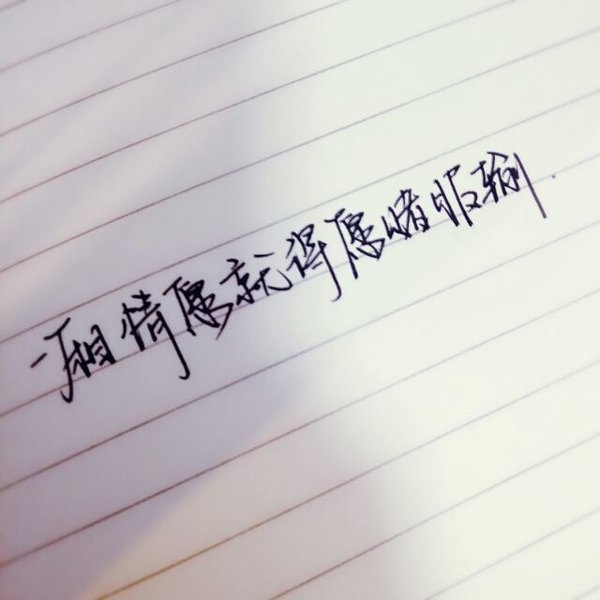 一厢情愿就得愿赌服输.